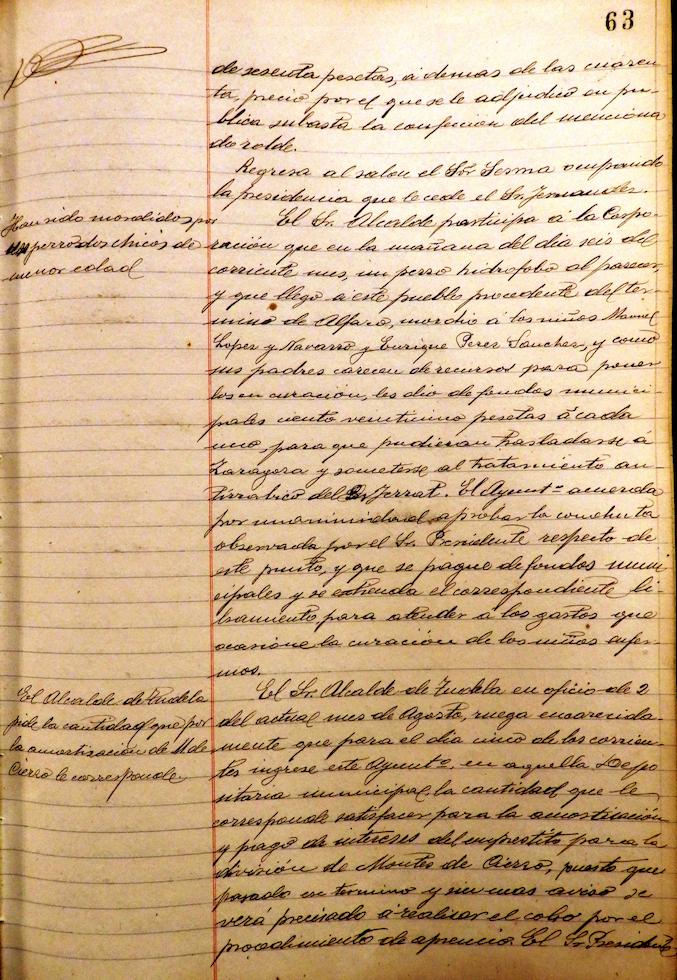 63
de sesenta pesetas, á demas de las cuaren
ta, precio por el que se le adjudicó en pu-
blica subasta la confeccion del menciona
do rolde.
Regresa al salon el Sor Serma ocupando
la presidencia que le cede el Sr. Fernandez.
Han sido mordidos por
un perro dos chicos de
menor edad
El Sr. Alcalde participa á la Corpo-
ración que en la mañana del dia seis del
corriente mes, un perro hidrofobo al parecer,
y que llegó á este pueblo procedente del ter-
mino de Alfaro, mordió á los niños Manuel
Lopez y Navarro y Enrique Perez Sanchez, y como
sus padres carecen de recursos para poner
los en curación, les dio de fondos munici-
pales ciento veinticinco pesetas á cada
uno, para que pudieran trasladarse á
Zaragoza y someterse al tratamiento an-
tirrabico del Dr Ferrat. El Ayuntº acuerda
por unanimidad aprobar la conducta
observada por el Sr. Presidente respecto de
este punto, y que se pague de fondos muni
cipales y se extienda el correspondiente li-
bramiento para atender á los gastos que
ocasione la curación de los niños enfer-
mos.
El Alcalde de Tudela
pide la cantidad que por
la amortización de M. de
Cierzo le corresponde
El Sr. Alcalde de Tudela en oficio de 2
del actual mes de Agosto, ruega encarecida-
mente que para el dia cinco de los corrien-
tes ingrese este Ayuntº en aquella Depo
sitaria municipal la cantidad que le
corresponde satisfacer para la amortización
y pago de intereses del emprestito para la
división de Montes de Cierzo, puesto que
pasado ese termino y sin mas aviso se
verá precisado á realizar el cobro por el
procedimiento de apremio. El Sr. Presidente